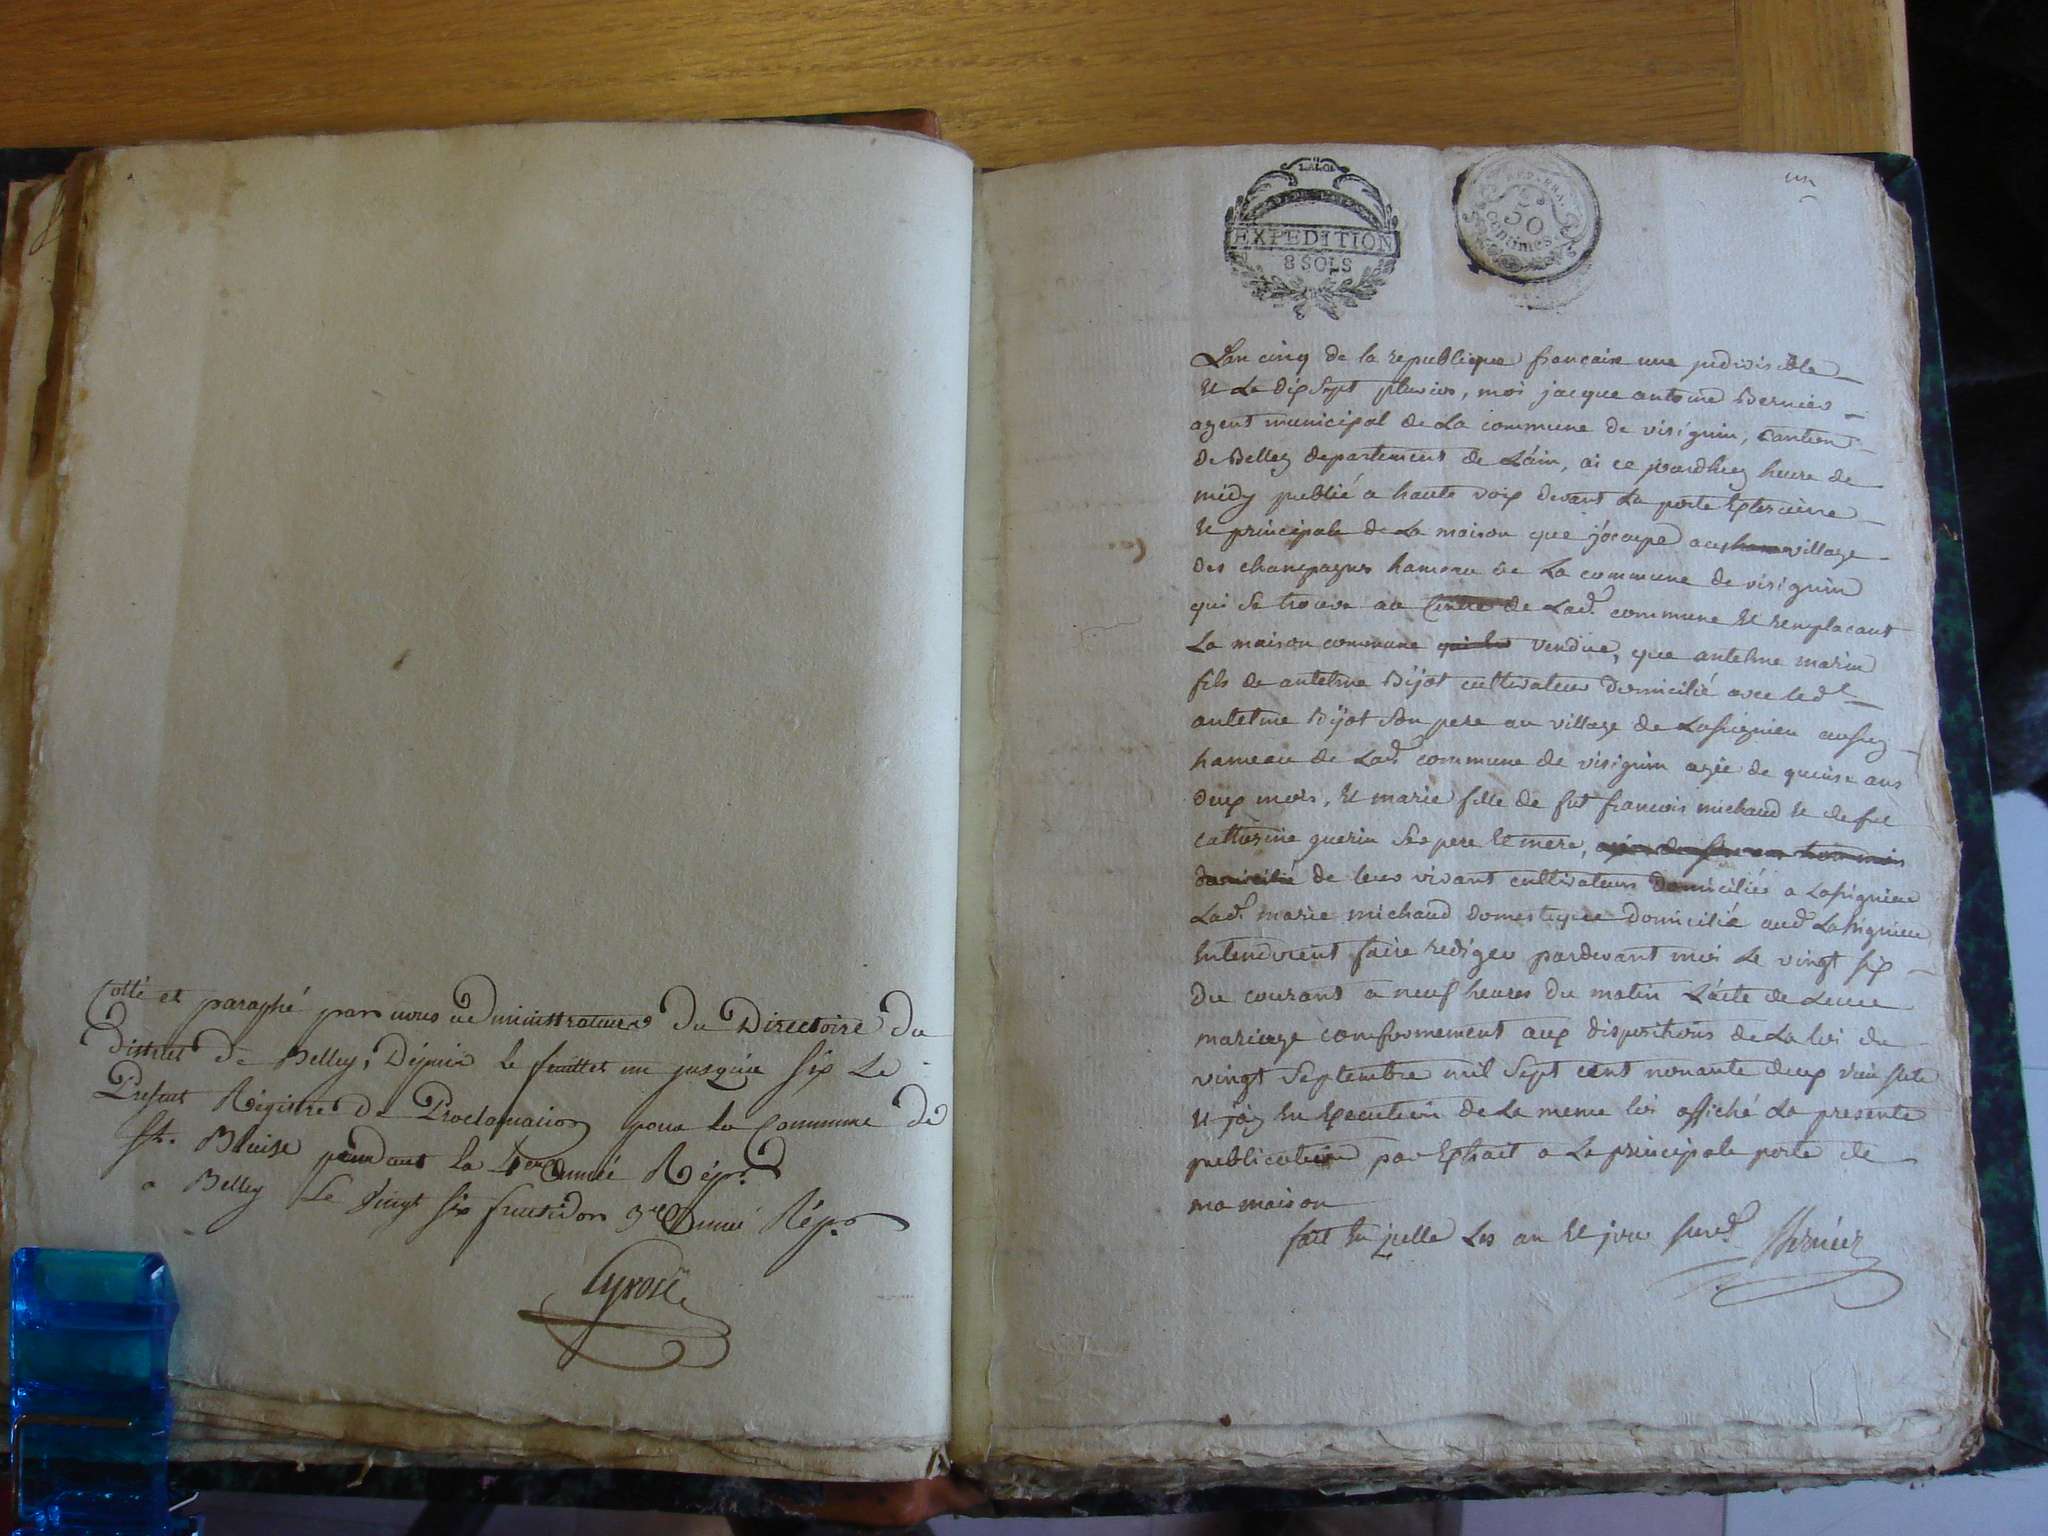 Cotté et paraphé par nous administrateurs du Directoire du
District de Belley, Dépuis le feuillet un jusqu'au six Le
Présent Régistre de Proclamation pour la Commune de
St. Blaise pendant la 4eme année Rép.
a Belley Le vingt six fructidor 3e année Rép.
Tyrosi
LA LOI
EXPEDITION
8 SOLS
REP. FRA.
50
Centimes
un
L'an cinq de la republique francaise une jndivisible
et Le dix sept pluvios, moi jacque antoine Bernier
agent municipal de La commune de visignin, canton
de Belley departement de L'ain, ai ce jourdhuy heure de
midy publié a haute voix devant La porte Exterieure
et principale de La maison que j'ocupe au village
des champagnes hameau de La commune de visignin
qui se trouve au Centre de Lad. commune et remplacant
La maison commune vendue, que antelme marin
fils de antelme Bijot cultivateur domicilié avec led
antelme Bijot son pere au village de Lassignieu aussy
hameau de Lad. commune de visignin agée de quinse ans
deux mois, et marie fille de fut francois michaud et de fut
Catherine guerin ses pere et mere,
domicilié de leur vivant cultivateurs domiciliés a Lassignieu
Lad. marie michaud domestique domicilié aud Lassignieu
Entendirent faire rediger pardevant moi Le vingt six
du courant a neuf heures du matin L'acte de Leur
mariage conformement aux dispositions de La loi du
vingt septembre mil sept cent nonante deux
et j'ay En Execution de La meme loi affiché La presente
publication par Extrait a La principale porte de
ma maison
fait En jcelle Les an et jour surd. Bernier